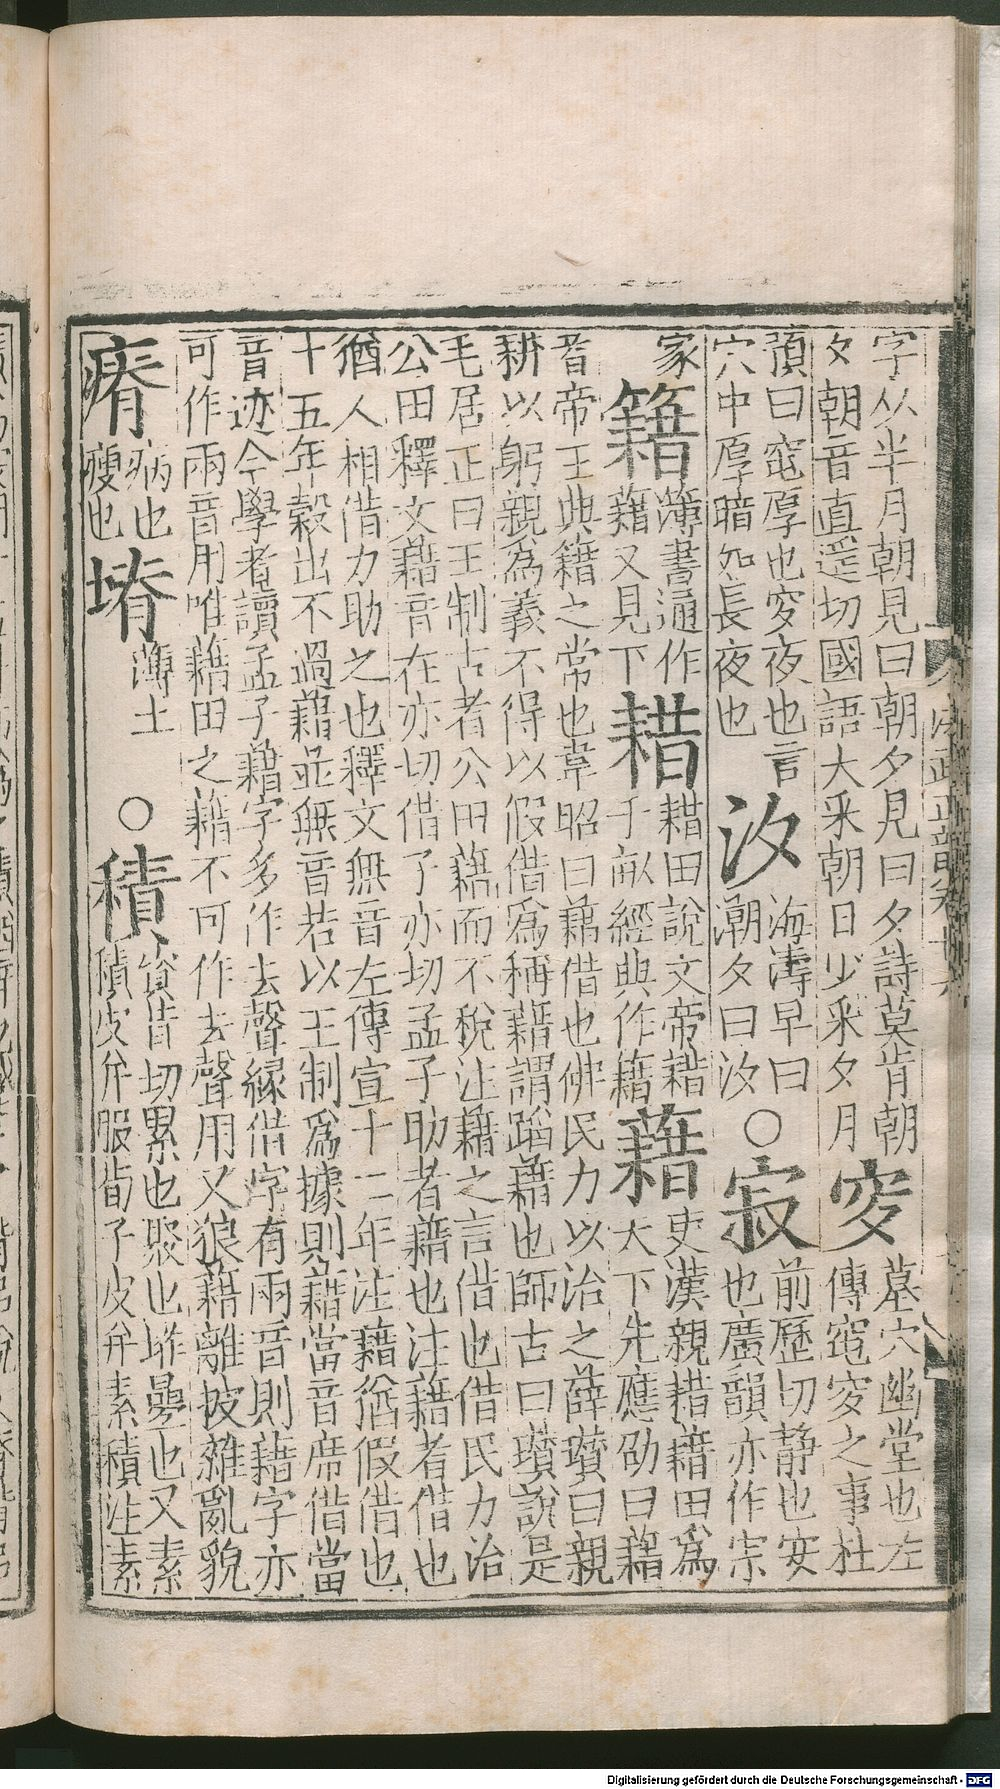 字从半月朝見曰朝夕見曰夕詩莫肯朝
夕朝音直遥切國語大采朝日少采夕月
窆
墓穴幽堂也左
傳窀窆之事杜
預曰窀厚也窆夜也言
穴中厚暗如長夜也
汐
海濤早曰
潮夕曰汐
○
寂
前歷切靜也安
也廣韻亦作宗
家
籍
簿書通作
藉又見下
耤
耤田說文帝耤
千畝經典作籍
藉
史漢親耤藉田為
天下先應劭曰藉
者帝王典籍之常也韋昭曰藉借也佛民力以治之薛瓚曰親
耕以躬親為義不得以假借為稱藉謂蹈藉也師古曰瓚說是
毛居正曰王制古者公田藉而不稅注藉之言借也借民力治
公田釋文藉音在亦切借了亦切孟子助者藉也注藉者借也
猶人相借力助之也釋文無音左傳宣十二年注藉猶假借也
十五年穀出不過藉並無音若以王制為據則藉當音席借當
音迹今學者讀孟子藉字多作去聲緣借字有兩音則藉字亦
可作兩音用唯藉田之藉不可作去聲用又狼藉離披雜亂貌
瘠
病也
瘦也
塉
薄土
○
積
資昔切累也聚也堆疊也又素
積皮弁服荀子皮弁素積注素
Digitalisierung gefördert durch die Deutsche Forschungsgemeinschaft - DFG